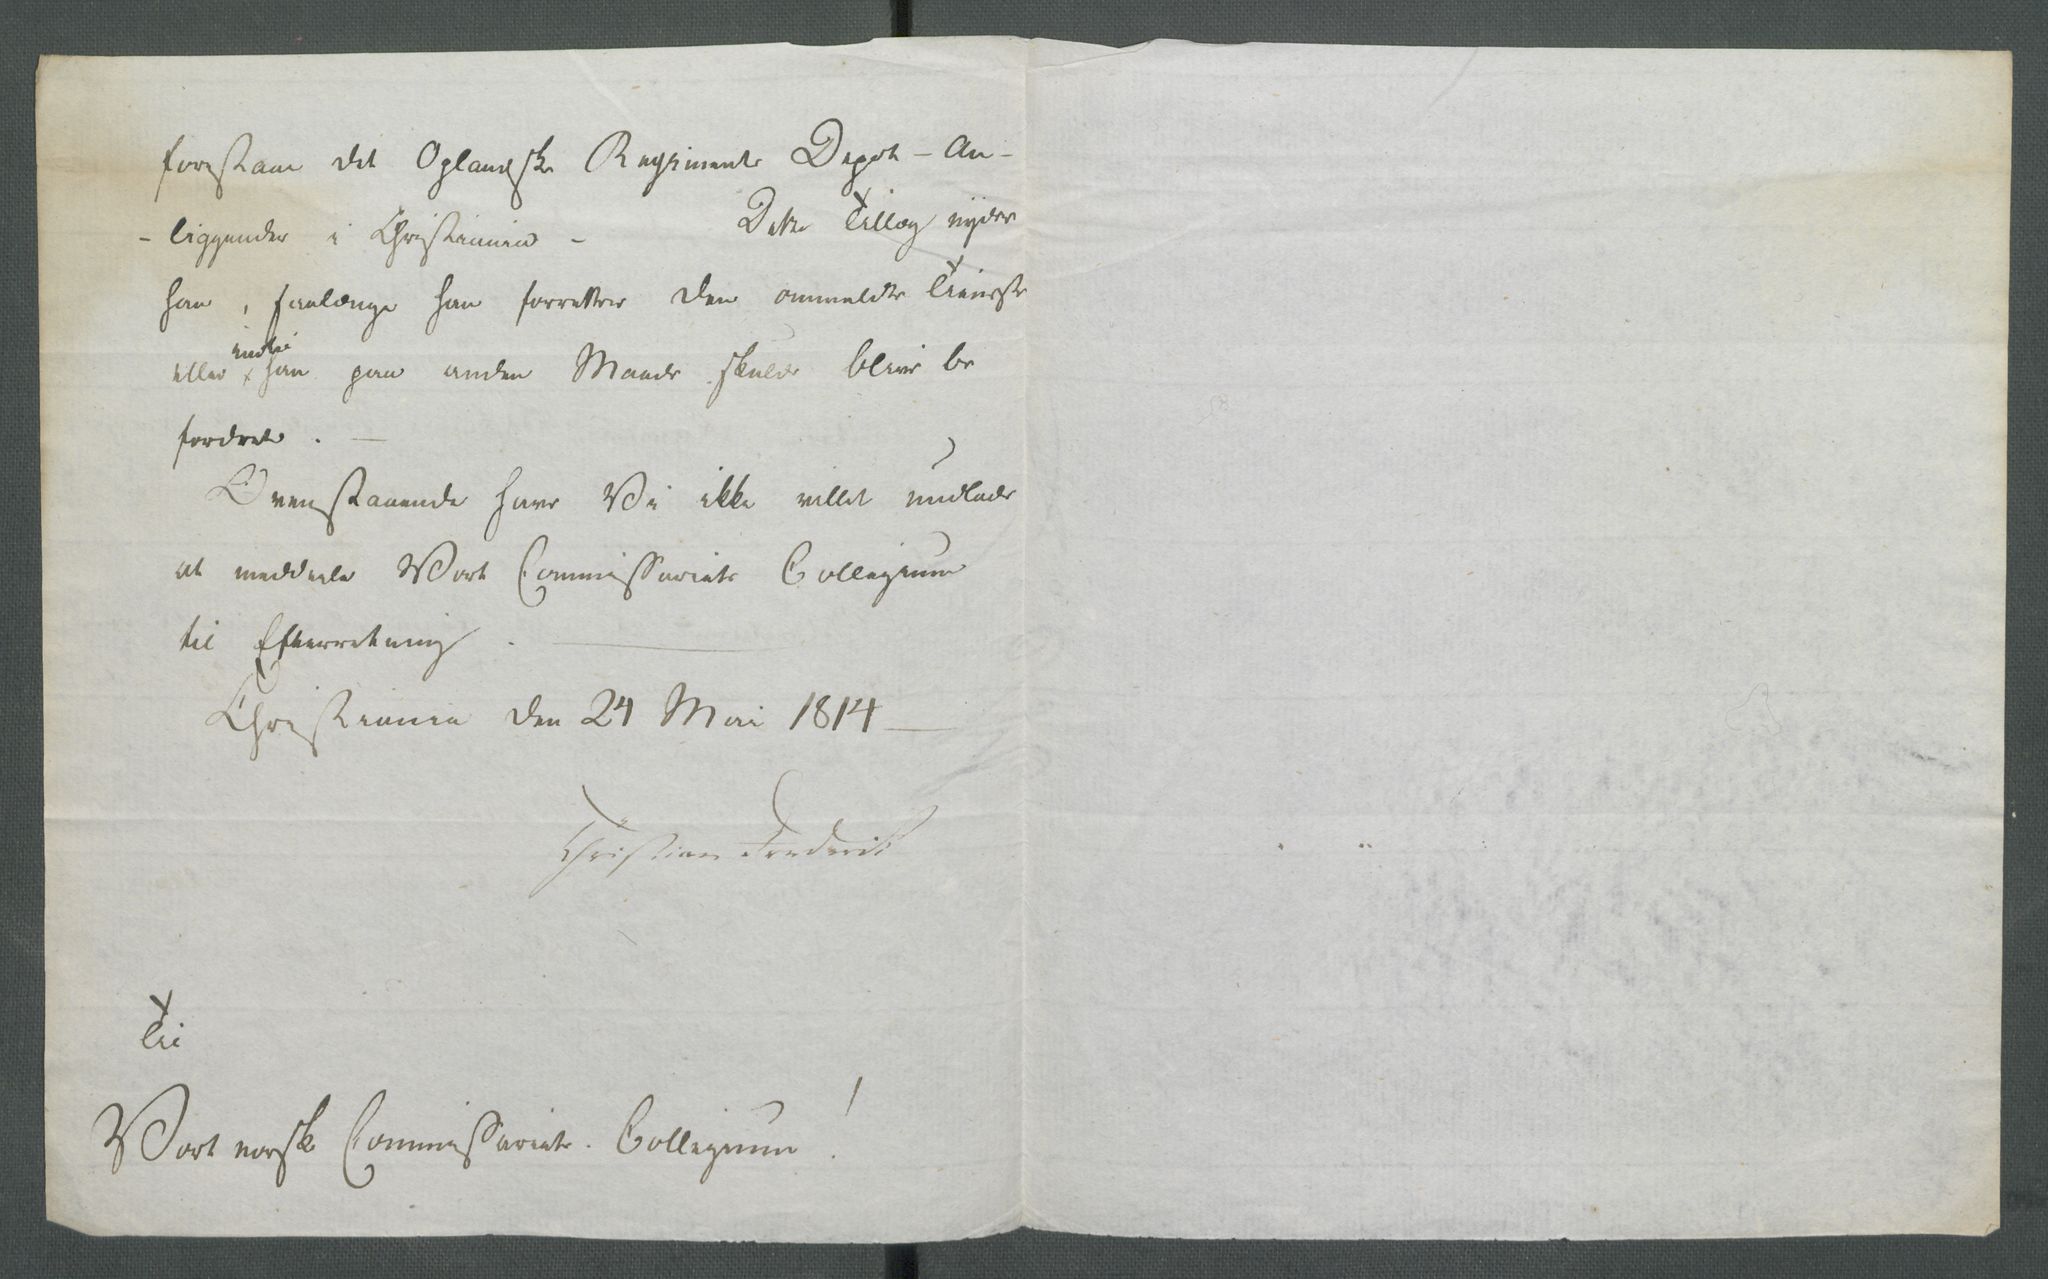 forestaae det Oplandske Regiments Depot-An-
-liggender i Christiania - Dette Tillæg nyder
han, saalænge han forretter den ommeldte Tieneste
eller indtil han paa anden Maade skulde blive be
fordret. —
Ovenstaaende have Vi ikke villet undlade
at meddeele Vort Commissariats Collegium
til Efterretning. —
Christiania den 24 Mai 1814 —
Christian Frederik
Til
Vort norske Commissariats-Collegium!